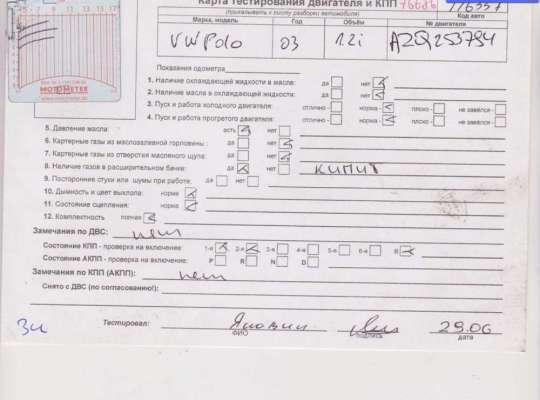 Карта тестирования двигателя и КПП
(прикалывать к листу разборки автомобиля)
Код авто
Марка, модель Год Объём № двигателя
VW Polo 03 1.2i AZQ253794
MOTOMETER
Показания одометра
1. Наличие охлаждающей жидкости в масле: да нет
2. Наличие масла в охлаждающей жидкости: да нет
3. Пуск и работа холодного двигателя: отлично норма плохо не завёлся
4. Пуск и работа прогретого двигателя: отлично норма плохо не завёлся
5. Давление масла: есть нет
6. Картерные газы из маслозаливной горловины: да нет
7. Картерные газы из отверстия масляного щупа: да нет
8. Наличие газов в расширительном бачке: да нет кипит
9. Посторонние стуки или шумы при работе: да нет
10. Дымность и цвет выхлопа: норма
11. Состояние сцепления: норма
12. Комплектность полная
Замечания по ДВС: нет
Состояние КПП - проверка на включение 1-я 2-я 3-я 4-я 5-я 6-я R
Состояние АКПП - проверка на включение: P R N D
Замечания по КПП (АКПП): нет
Снято с ДВС (по согласованию!):
Тестировал: 29.06
ФИО подпись дата